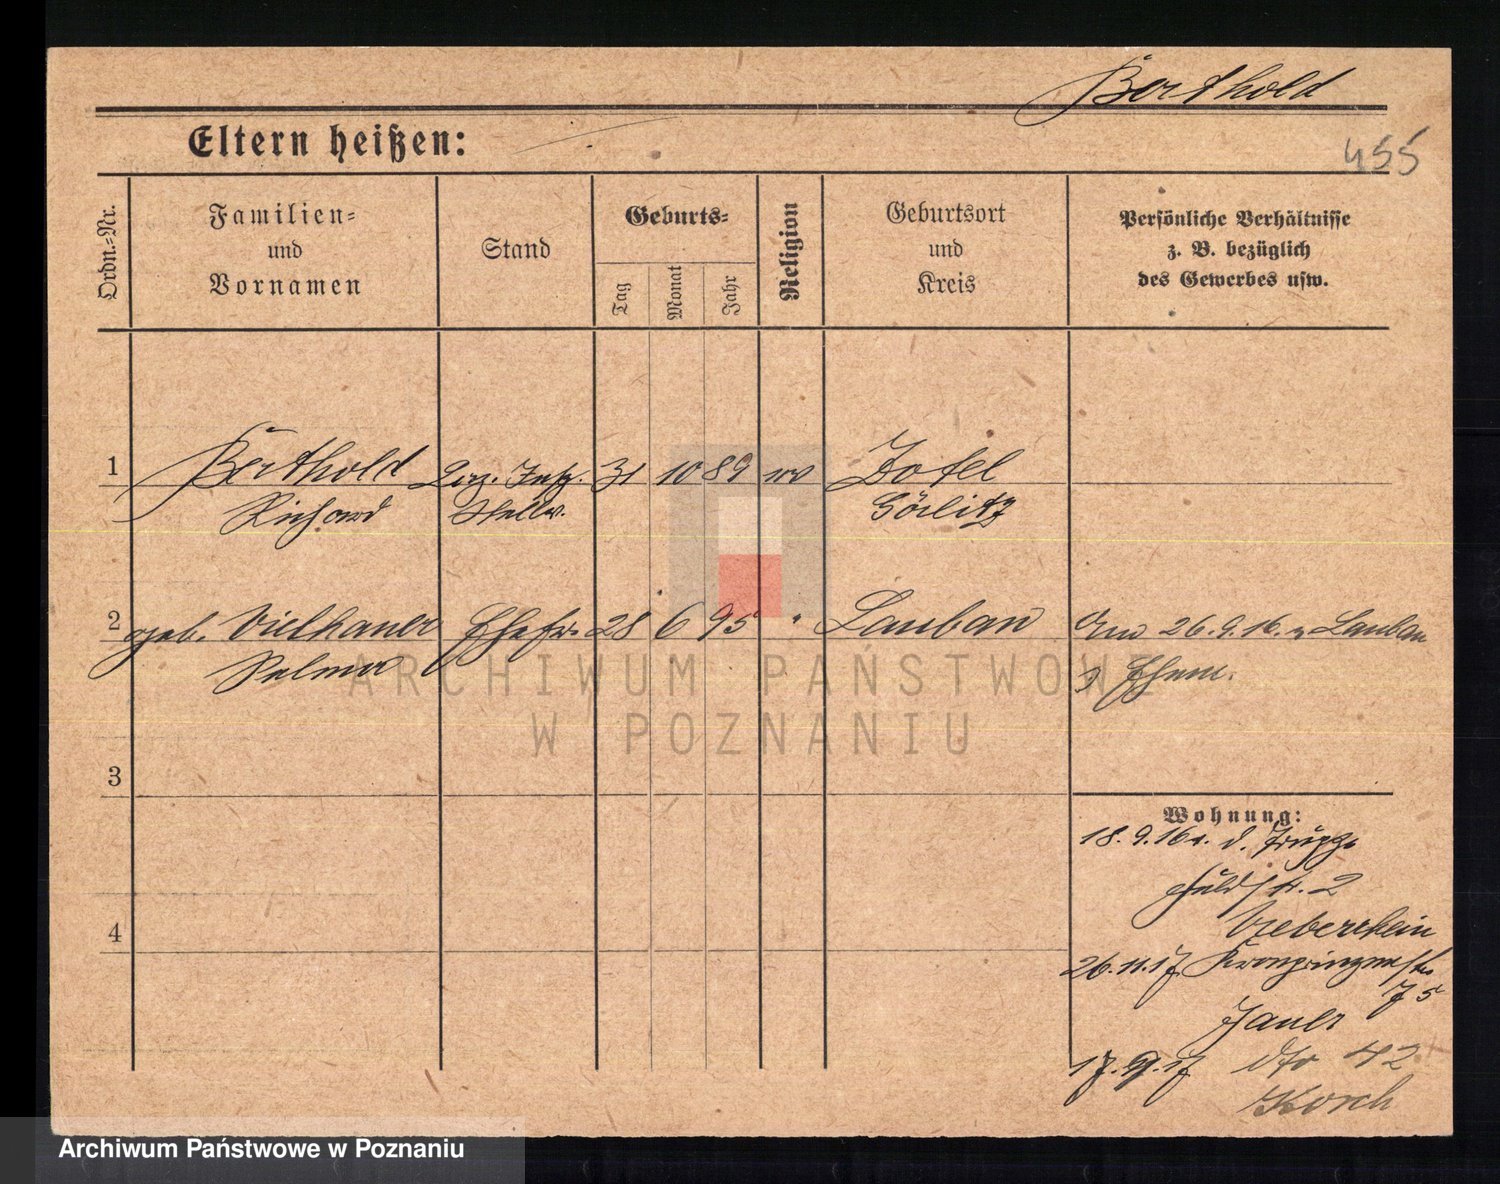 Berthold
455
Eltern heißen:
Ordn.=Nr.
Familien=
und
Vornamen
Stand
Geburts=
Tag
Monat
Jahr
Religion
Geburtsort
und
Kreis
Persönliche Verhältnisse
z. B. bezüglich
des Gewerbes usw.
1 Berthold 31 10 89 Zotel
Richard Stellv. Görlitz
2 geb. Vielhauer Ehefr. 28 6 95 " Lauban 26.9.16. Lauban
Selma
ARCHIWUM PAŃSTWOWE
W POZNANIU
3
Wohnung:
18.9.16 v. d. Truppe
2
4
26.11.17 Kronprinzenstr.
75
Jauer
17.9.17 dto 42
Archiwum Państwowe w Poznaniu